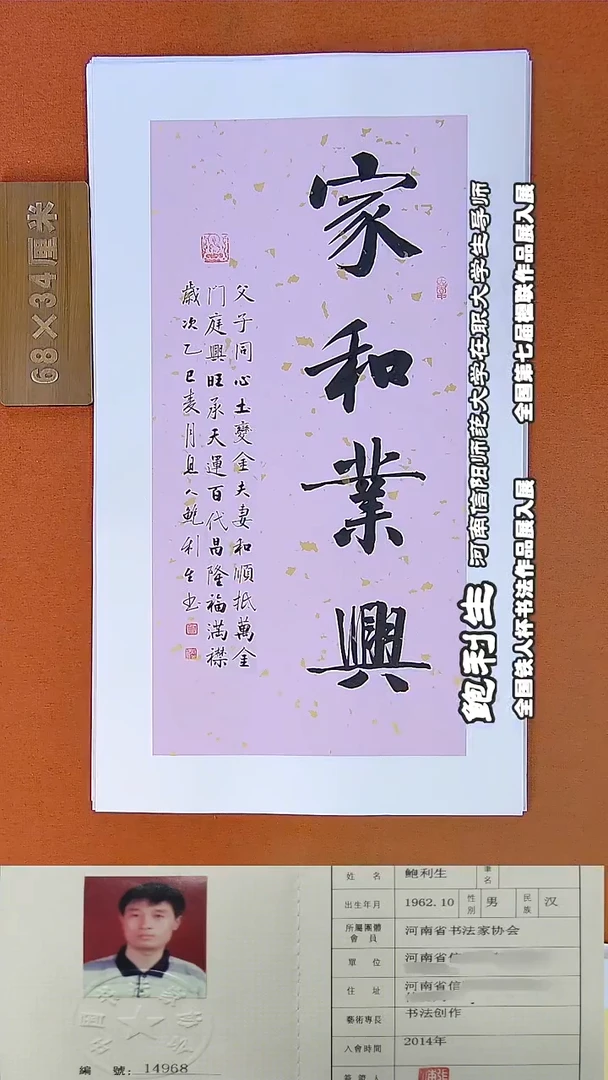 68×34厘米
家和業興
父子同心土變金夫妻和順抵萬金
门庭興旺承天運百代昌隆福满襟
歲次乙巳夏月
鲍利生书
鲍利生 河南信阳师范大学在职大学生导师
全国铁人杯书法作品展入展 全国第七届楹联作品展入展
姓名 鲍利生
出生年月 1962.10 性别 男 民族 汉
所屬團體會員 河南省书法家协会
單位 河南省信
住址 河南省信
藝術專長 书法创作
入會時間 2014年
簽發人
編號: 14968